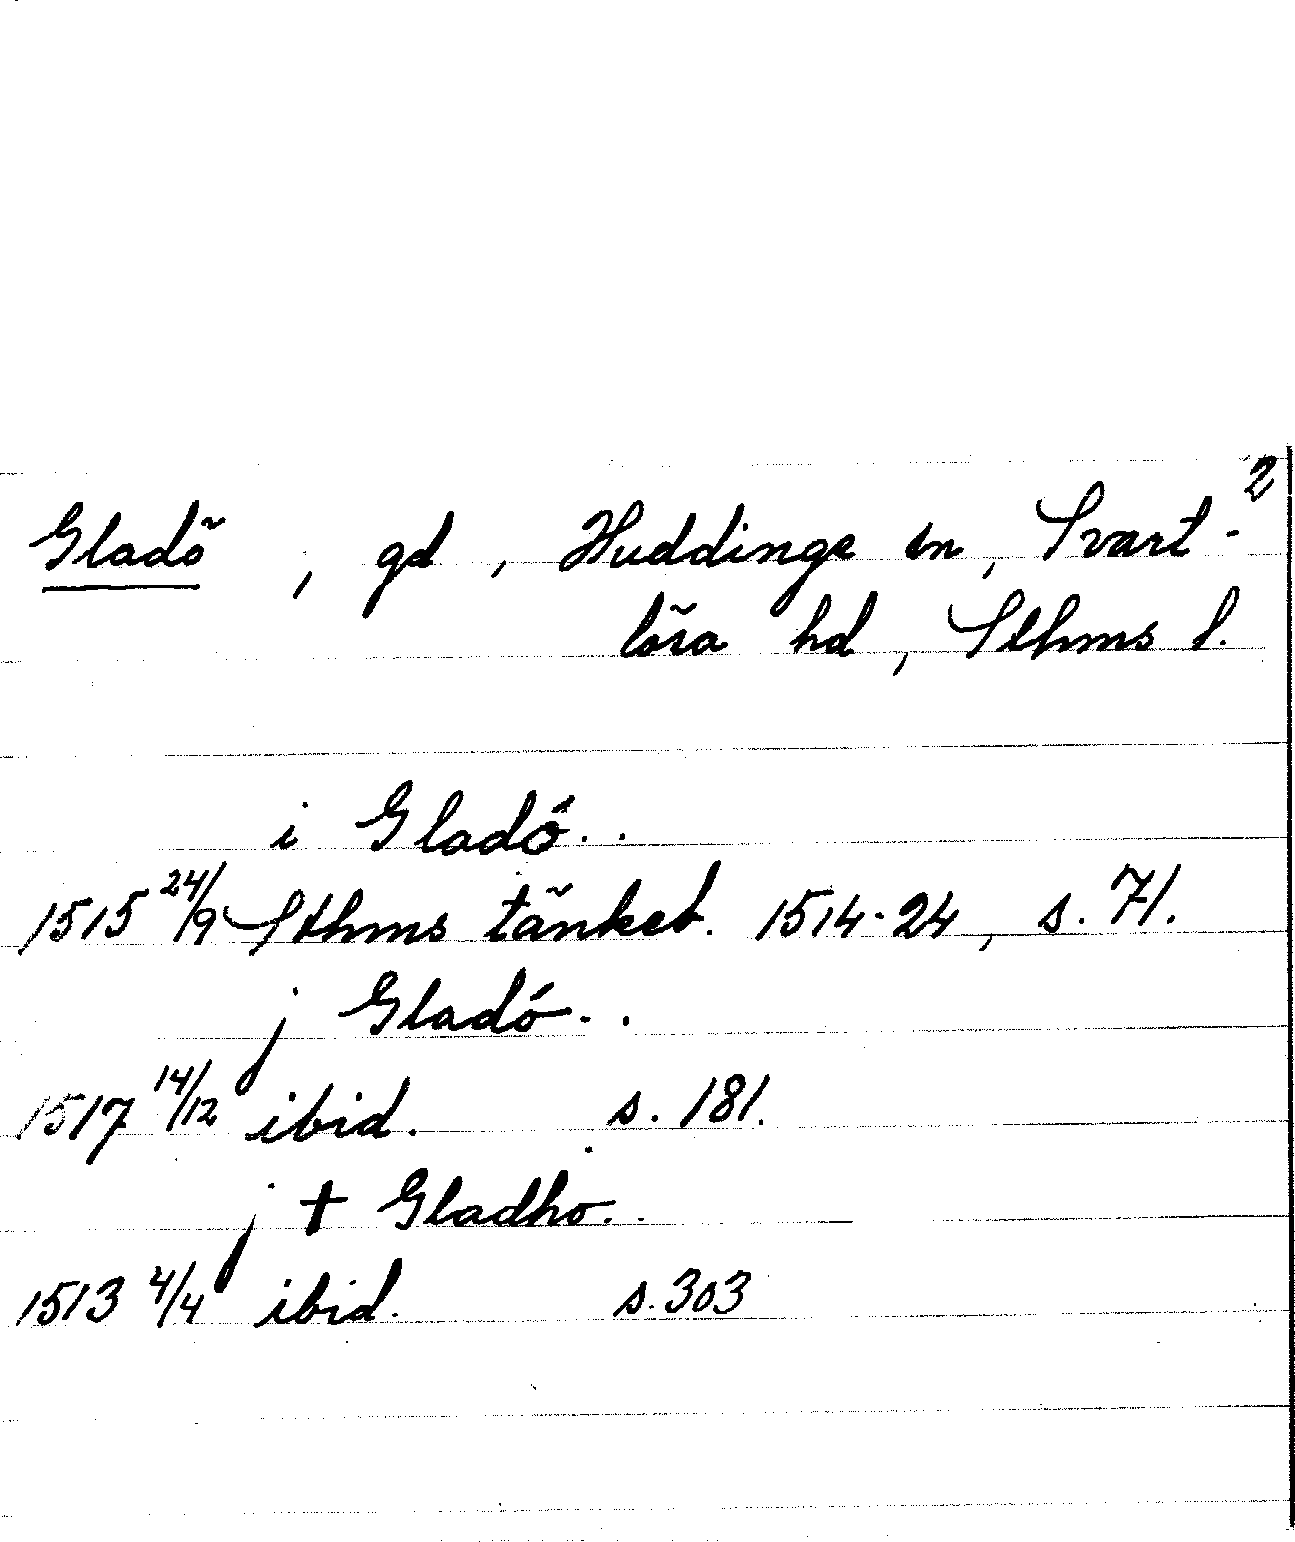 2
Gladö, gd, Huddinge sn, Svart-
lösa hd, Sthms l.
i Gladó..
1515 24/9 Sthms tänkeb. 1514-24, s. 71.
j Gladó..
1517 14/12 ibid. s. 181.
j † Gladho..
1513 4/4 ibid. s. 303